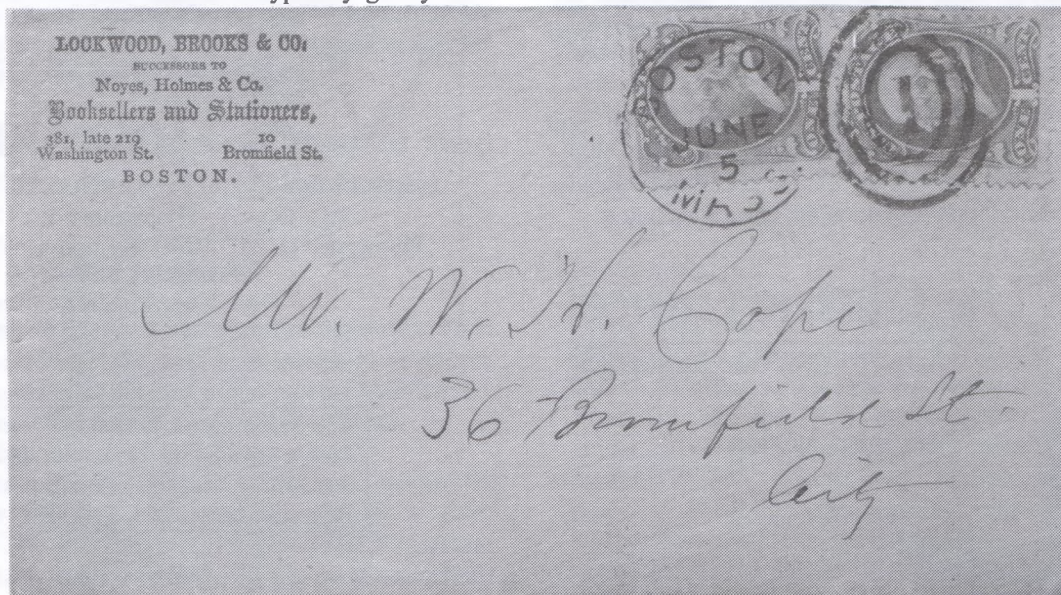 LOCKWOOD, BROOKS & CO.
SUCCESSORS TO
Noyes, Holmes & Co.
Booksellers and Stationers,
381, late 219 10
Washington St. Bromfield St.
BOSTON.
BOSTON
JUNE
5
MASS.
1
Mr. W. H. Cope
36 Bromfield St.
City